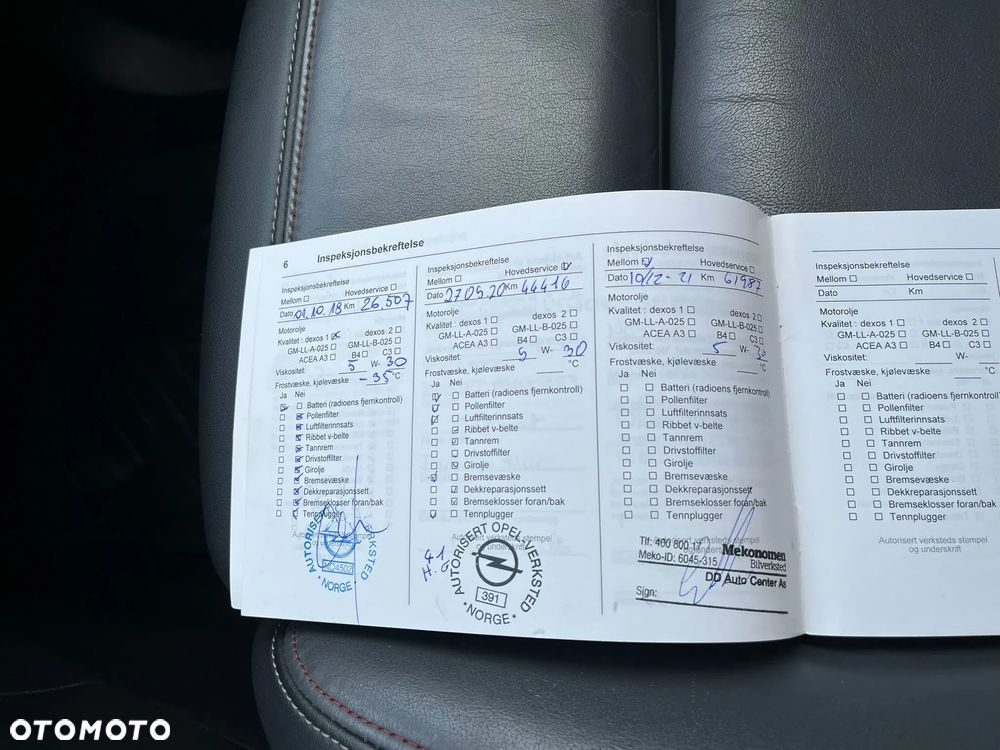 6 Inspeksjonsbekreftelse
Inspeksjonsbekreftelse
Mellom Hovedservice
Dato 01.10.18 Km 26,507
Motorolje
Kvalitet : dexos 1 dexos 2
GM-LL-A-025 GM-LL-B-025
ACEA A3 B4 C3
Viskositet: 5 W- 30
Frostvæske, kjølevæske -35 °C
Ja Nei
Batteri (radioens fjernkontroll)
Pollenfilter
Luftfilterinnsats
Ribbet v-belte
Tannrem
Drivstoffilter
Girolje
Bremsevæske
Dekkreparasjonssett
Bremseklosser foran/bak
Tennplugger
AUTORISERT VERKSTED
NORGE
Inspeksjonsbekreftelse
Mellom Hovedservice
Dato 27.05.20 Km 44416
Motorolje
Kvalitet : dexos 1 dexos 2
GM-LL-A-025 GM-LL-B-025
ACEA A3 B4 C3
Viskositet: 5 W- 30
Frostvæske, kjølevæske °C
Ja Nei
Batteri (radioens fjernkontroll)
Pollenfilter
Luftfilterinnsats
Ribbet v-belte
Tannrem
Drivstoffilter
Girolje
Bremsevæske
Dekkreparasjonssett
Bremseklosser foran/bak
Tennplugger
AUTORISERT OPEL VERKSTED
391
NORGE
Inspeksjonsbekreftelse
Mellom Hovedservice
Dato 10/12-21 Km 61987
Motorolje
Kvalitet : dexos 1 dexos 2
GM-LL-A-025 GM-LL-B-025
ACEA A3 B4 C3
Viskositet: 5 W- 30
Frostvæske, kjølevæske °C
Ja Nei
Batteri (radioens fjernkontroll)
Pollenfilter
Luftfilterinnsats
Ribbet v-belte
Tannrem
Drivstoffilter
Girolje
Bremsevæske
Dekkreparasjonssett
Bremseklosser foran/bak
Tennplugger
Tlf: 400 800
Meko-ID: 6045-315
Mekonomen
Bilverksted
DD Auto Center As
Sign:
Inspeksjonsbekreftelse
Mellom Hovedservice
Dato Km
Motorolje
Kvalitet : dexos 1 dexos 2
GM-LL-A-025 GM-LL-B-025
ACEA A3 B4 C3
Viskositet: W-
Frostvæske, kjølevæske °C
Ja Nei
Batteri (radioens fjernkontroll)
Pollenfilter
Luftfilterinnsats
Ribbet v-belte
Tannrem
Drivstoffilter
Girolje
Bremsevæske
Dekkreparasjonssett
Bremseklosser foran/bak
Tennplugger
Autorisert verksteds stempel
og underskrift
OTOMOTO